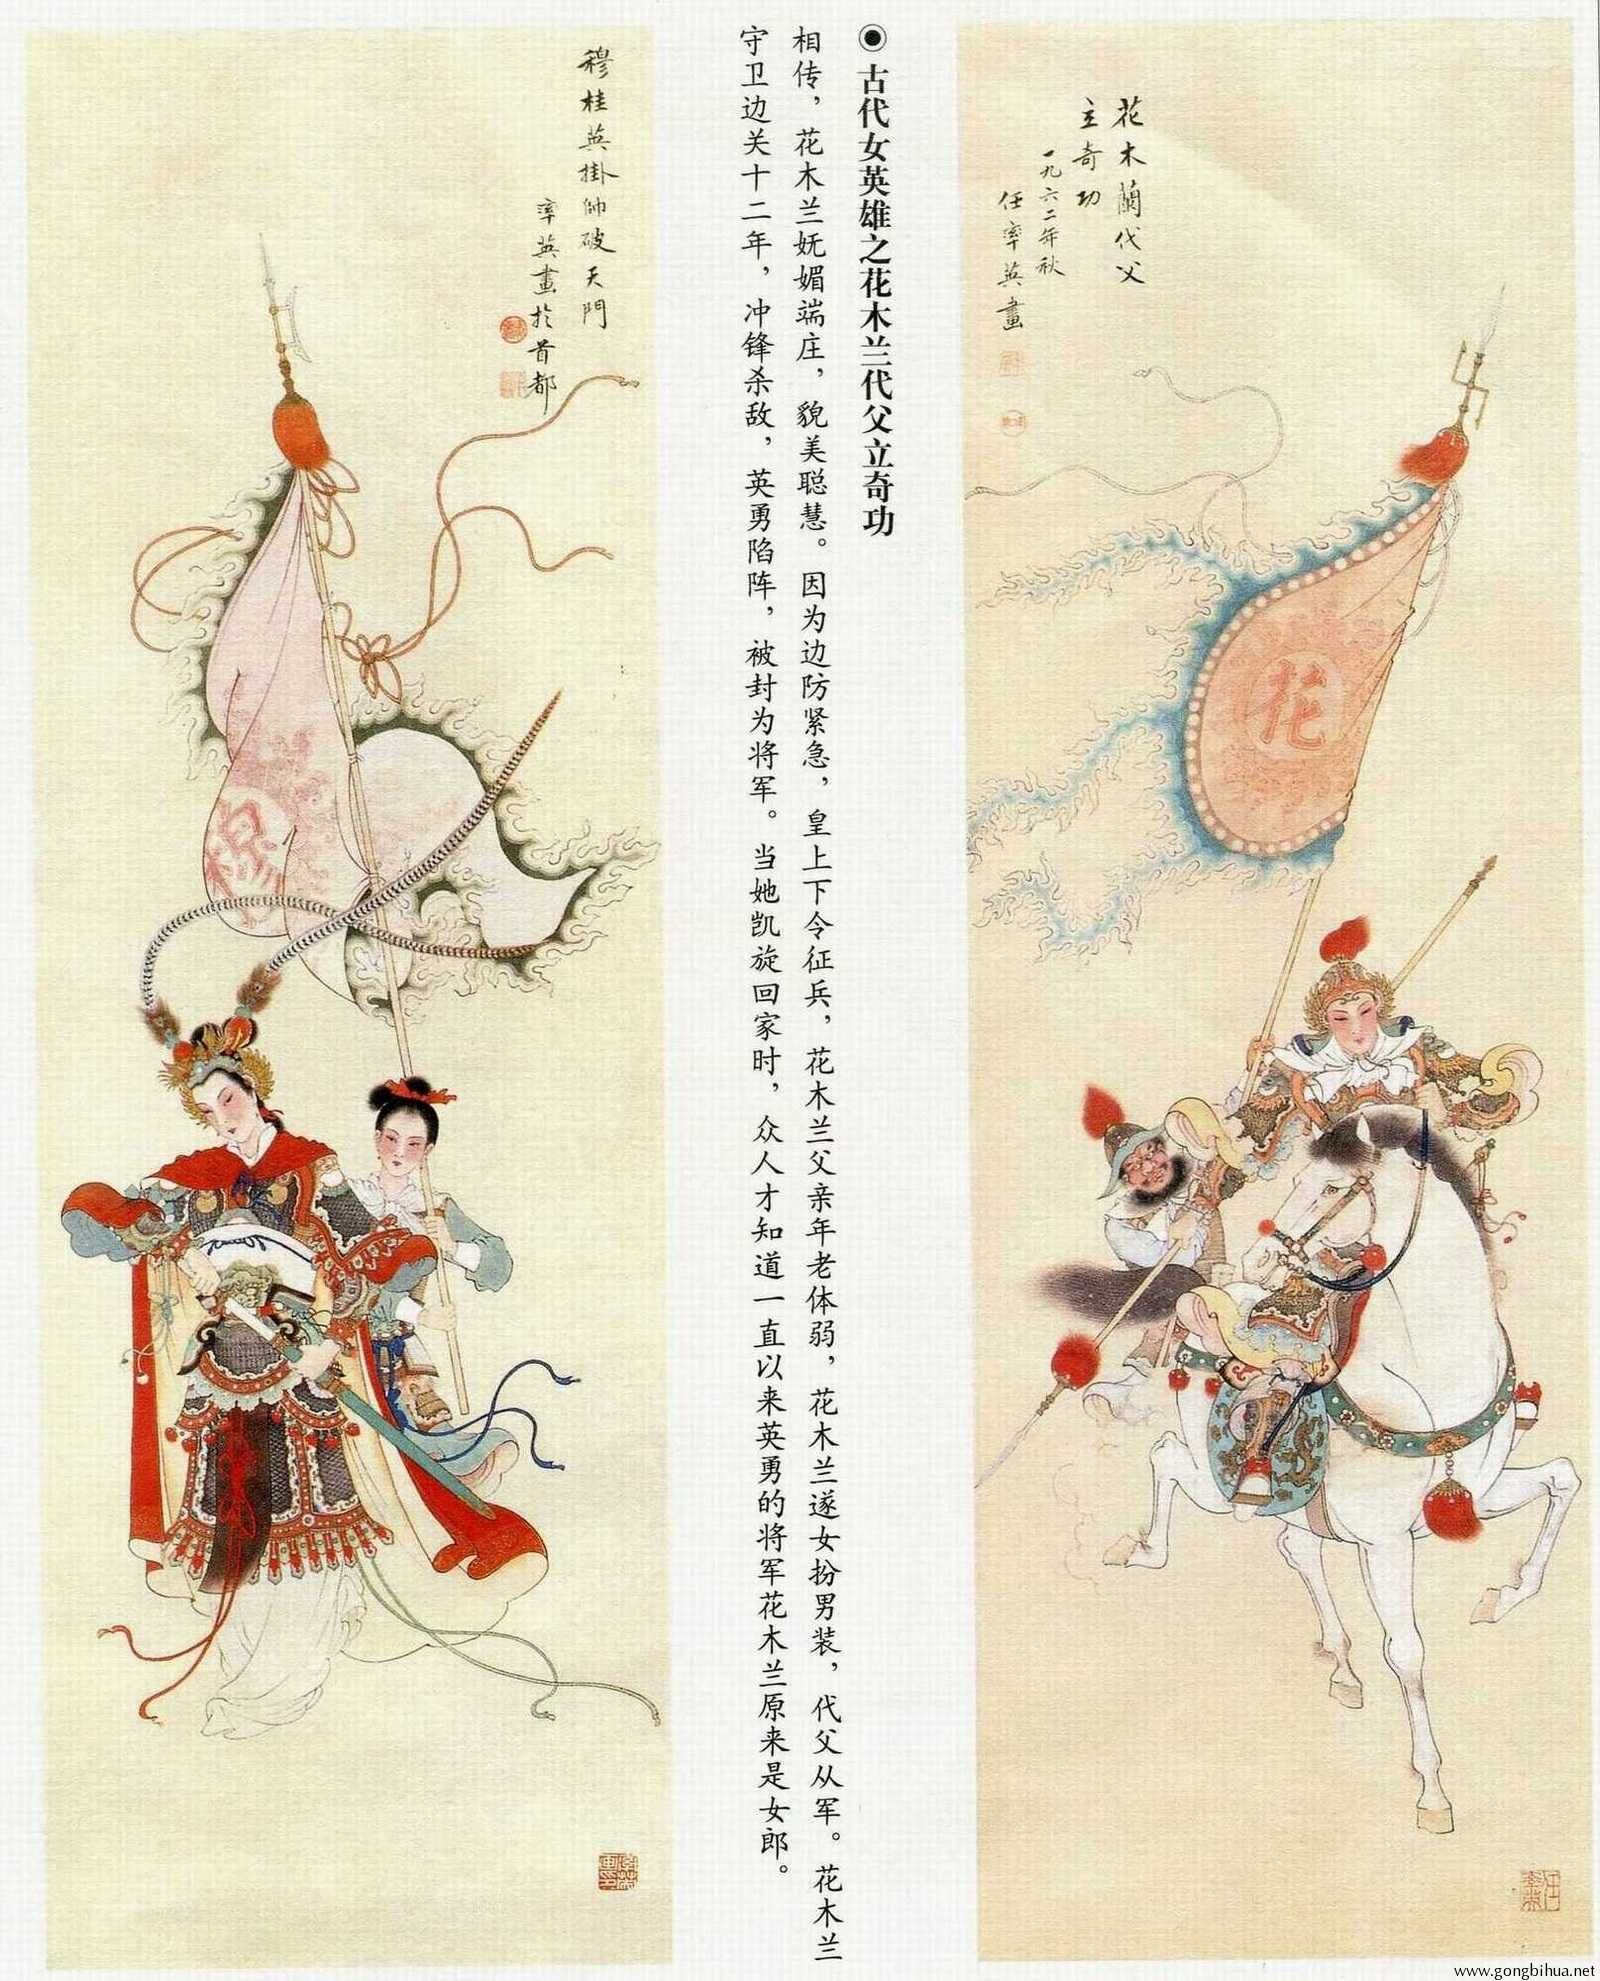 花木蘭代父
立奇功
一九六二年秋
任率英畫
花
◉古代女英雄之花木兰代父立奇功
相传，花木兰妩媚端庄，貌美聪慧。因为边防紧急，皇上下令征兵，花木兰父亲年老体弱，花木兰遂女扮男装，代父从军。花木兰
守卫边关十二年，冲锋杀敌，英勇陷阵，被封为将军。当她凯旋回家时，众人才知道一直以来英勇的将军花木兰原来是女郎。
穆桂英掛帥破天門
率英畫於首都
穆
www.gongbihua.net